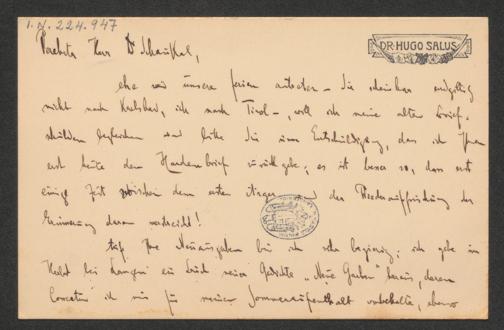 I.N. 224.947
DR HUGO SALUS
Verehrter Herr Dr Schaukal,
ehe wir unsere Ferien antreten – Sie scheinbar endgültig
nicht nach Karlsbad, ich nach Tirol –, will ich meine alten Brief-
schulden begleichen und bitte Sie um Entschuldigung, dass ich Ihnen
erst heute den Hardenbrief zurückgebe; es ist besser so, dass erst
einige Zeit zwischen dem ersten Ärger und der Wiederauffrischung der
Erinnerung daran verstreicht!
Auf Ihre Neuausgaben bin ich sehr begierig; ich gebe im
Herbst bei Langen ein Buch neuer Gedichte „Neue Garben" heraus, deren
Correctur ich mir für meinen Sommeraufenthalt vorbehalte, ebenso